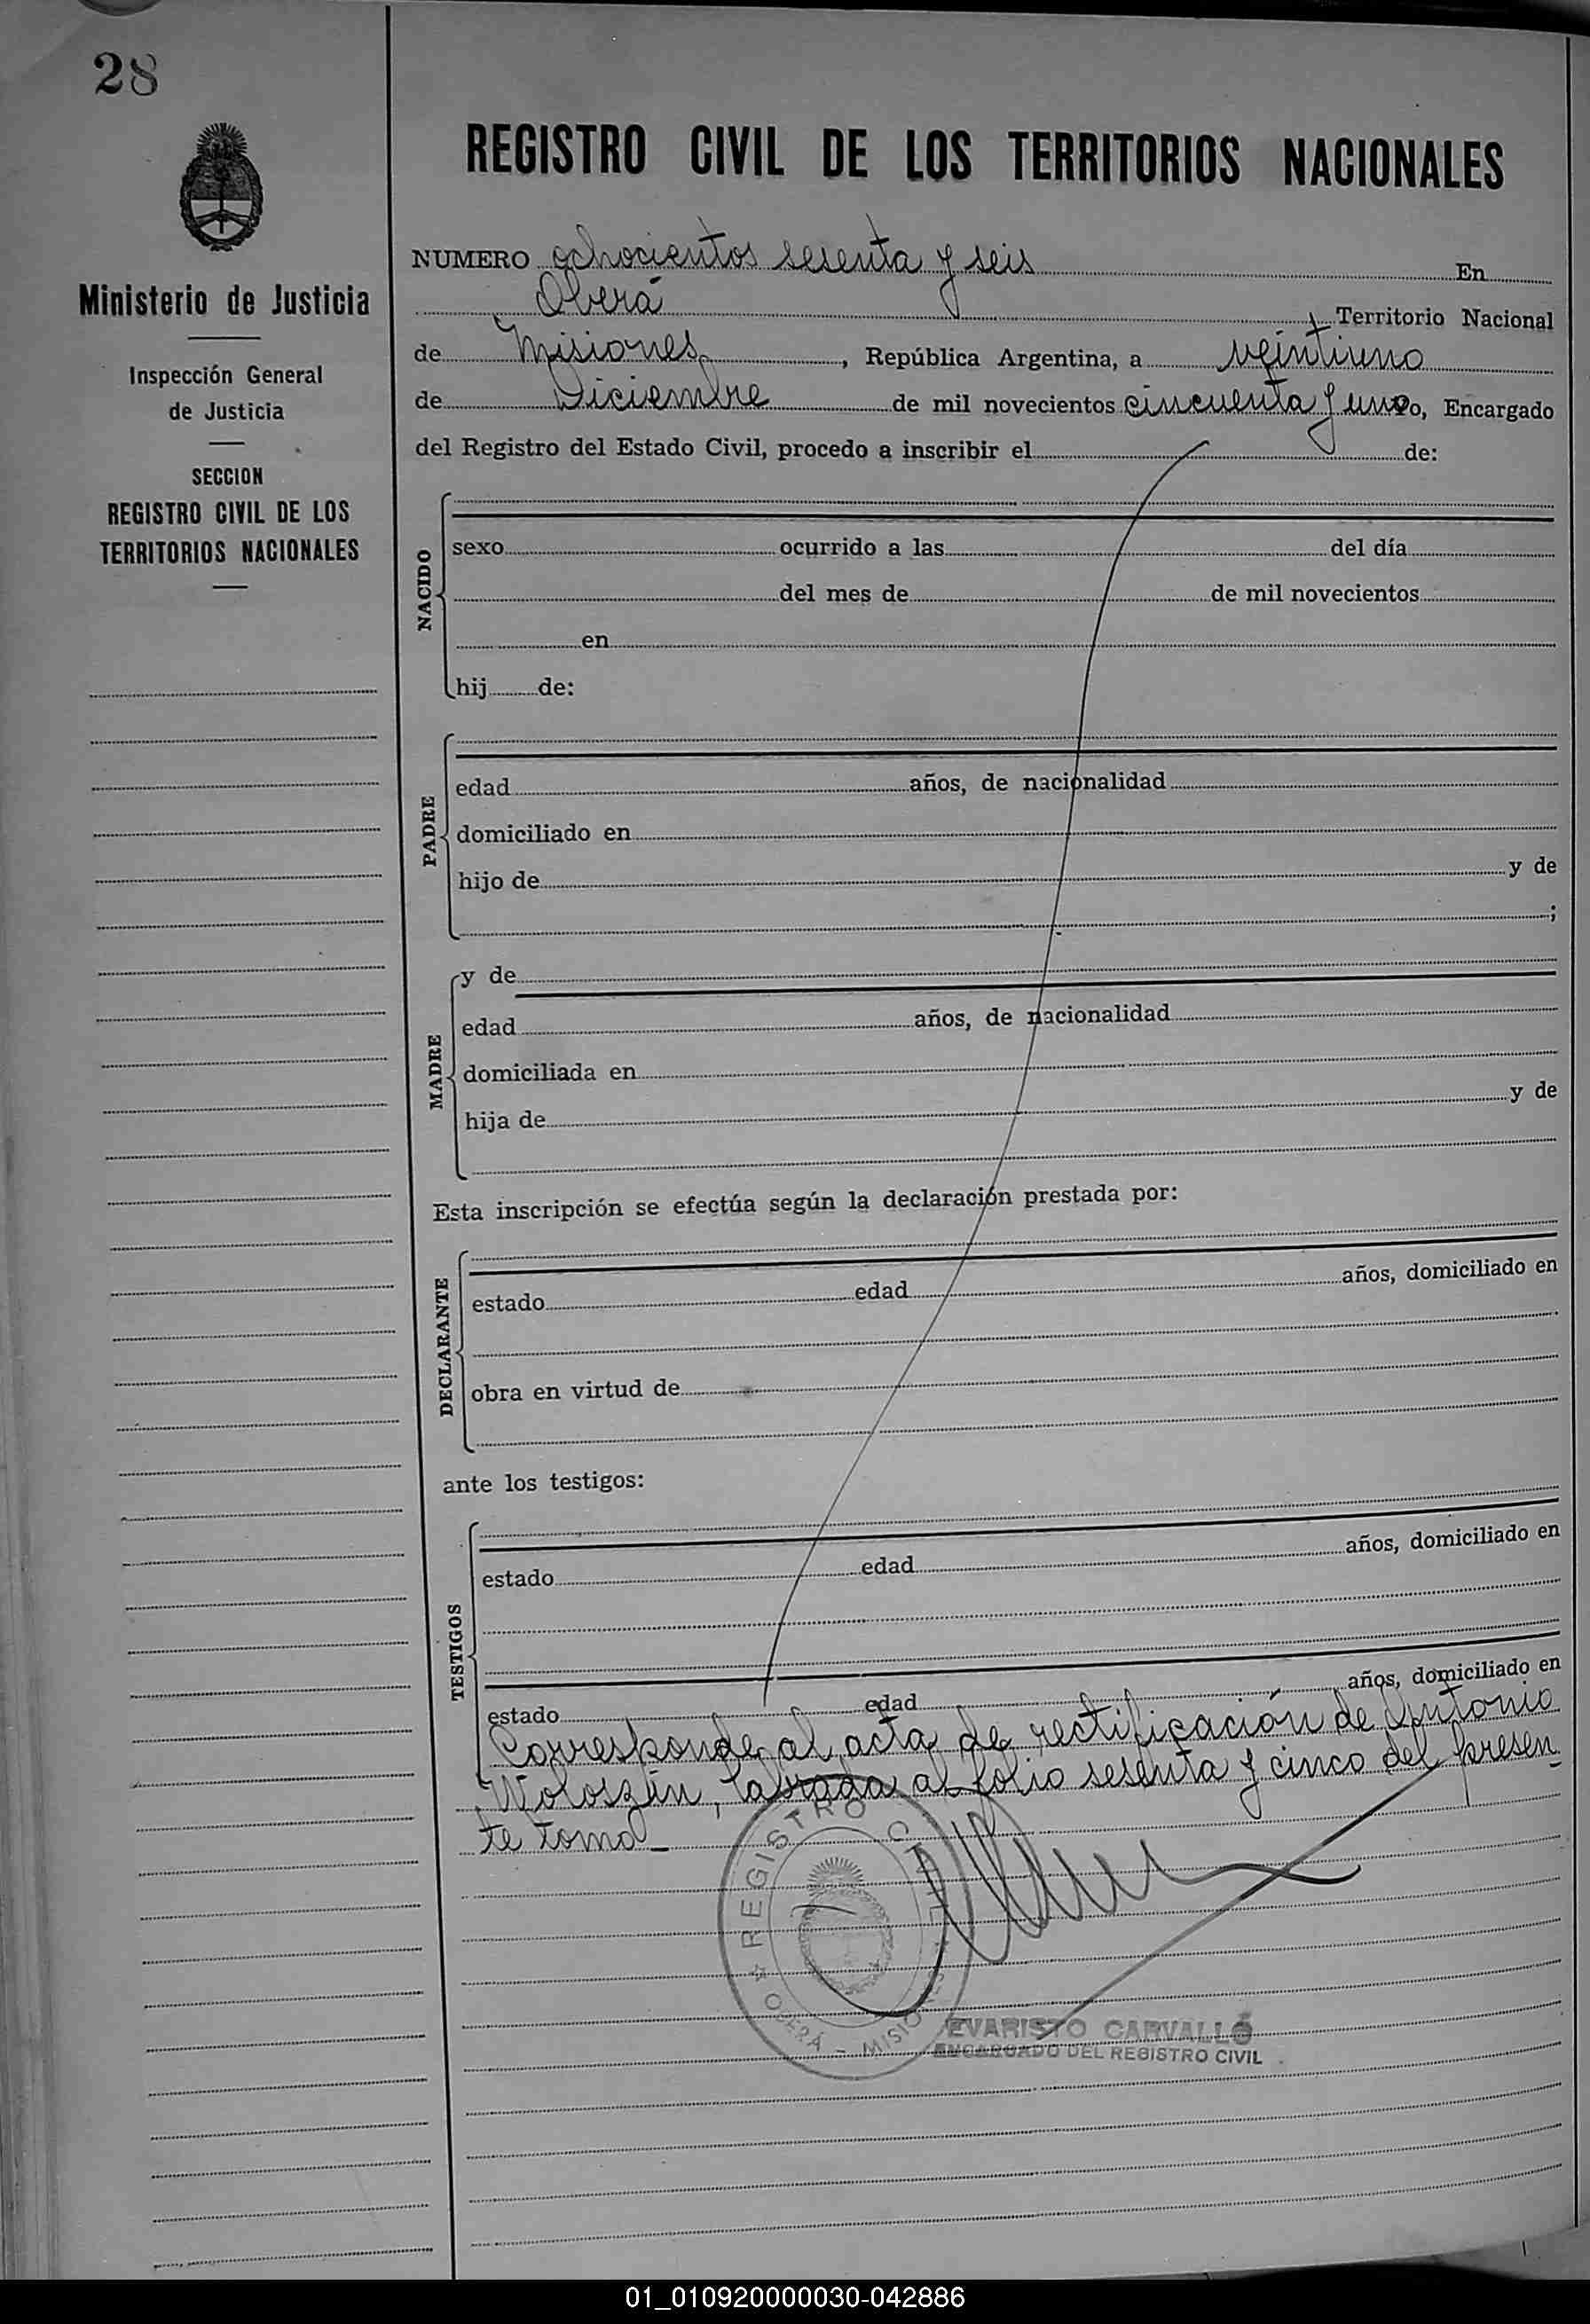 28
REGISTRO CIVIL DE LOS TERRITORIOS NACIONALES
Ministerio de Justicia
Inspección General
de Justicia
SECCION
REGISTRO CIVIL DE LOS
TERRITORIOS NACIONALES
NUMERO ochocientos sesenta y seis En
Oberá Territorio Nacional
de Misiones, República Argentina, a veintiuno
de Diciembre de mil novecientos cincuenta y uno, Encargado
del Registro del Estado Civil, procedo a inscribir el de:
NACIDO
sexo ocurrido a las del día
del mes de de mil novecientos
en
hij de:
PADRE
edad años, de nacionalidad
domiciliado en
hijo de y de
;
MADRE
y de
edad años, de nacionalidad
domiciliada en
hija de y de
Esta inscripción se efectúa según la declaración prestada por:
DECLARANTE
estado edad años, domiciliado en
obra en virtud de
ante los testigos:
TESTIGOS
estado edad años, domiciliado en
estado edad años, domiciliado en
Corresponde al acta de rectificación de Antonio
Woloszin, labrada al folio sesenta y cinco del presen
te tomo
REGISTRO CIVIL
OBERÁ - MISIONES
EVARISTO CARVALLO
ENCARGADO DEL REGISTRO CIVIL
01_010920000030-042886